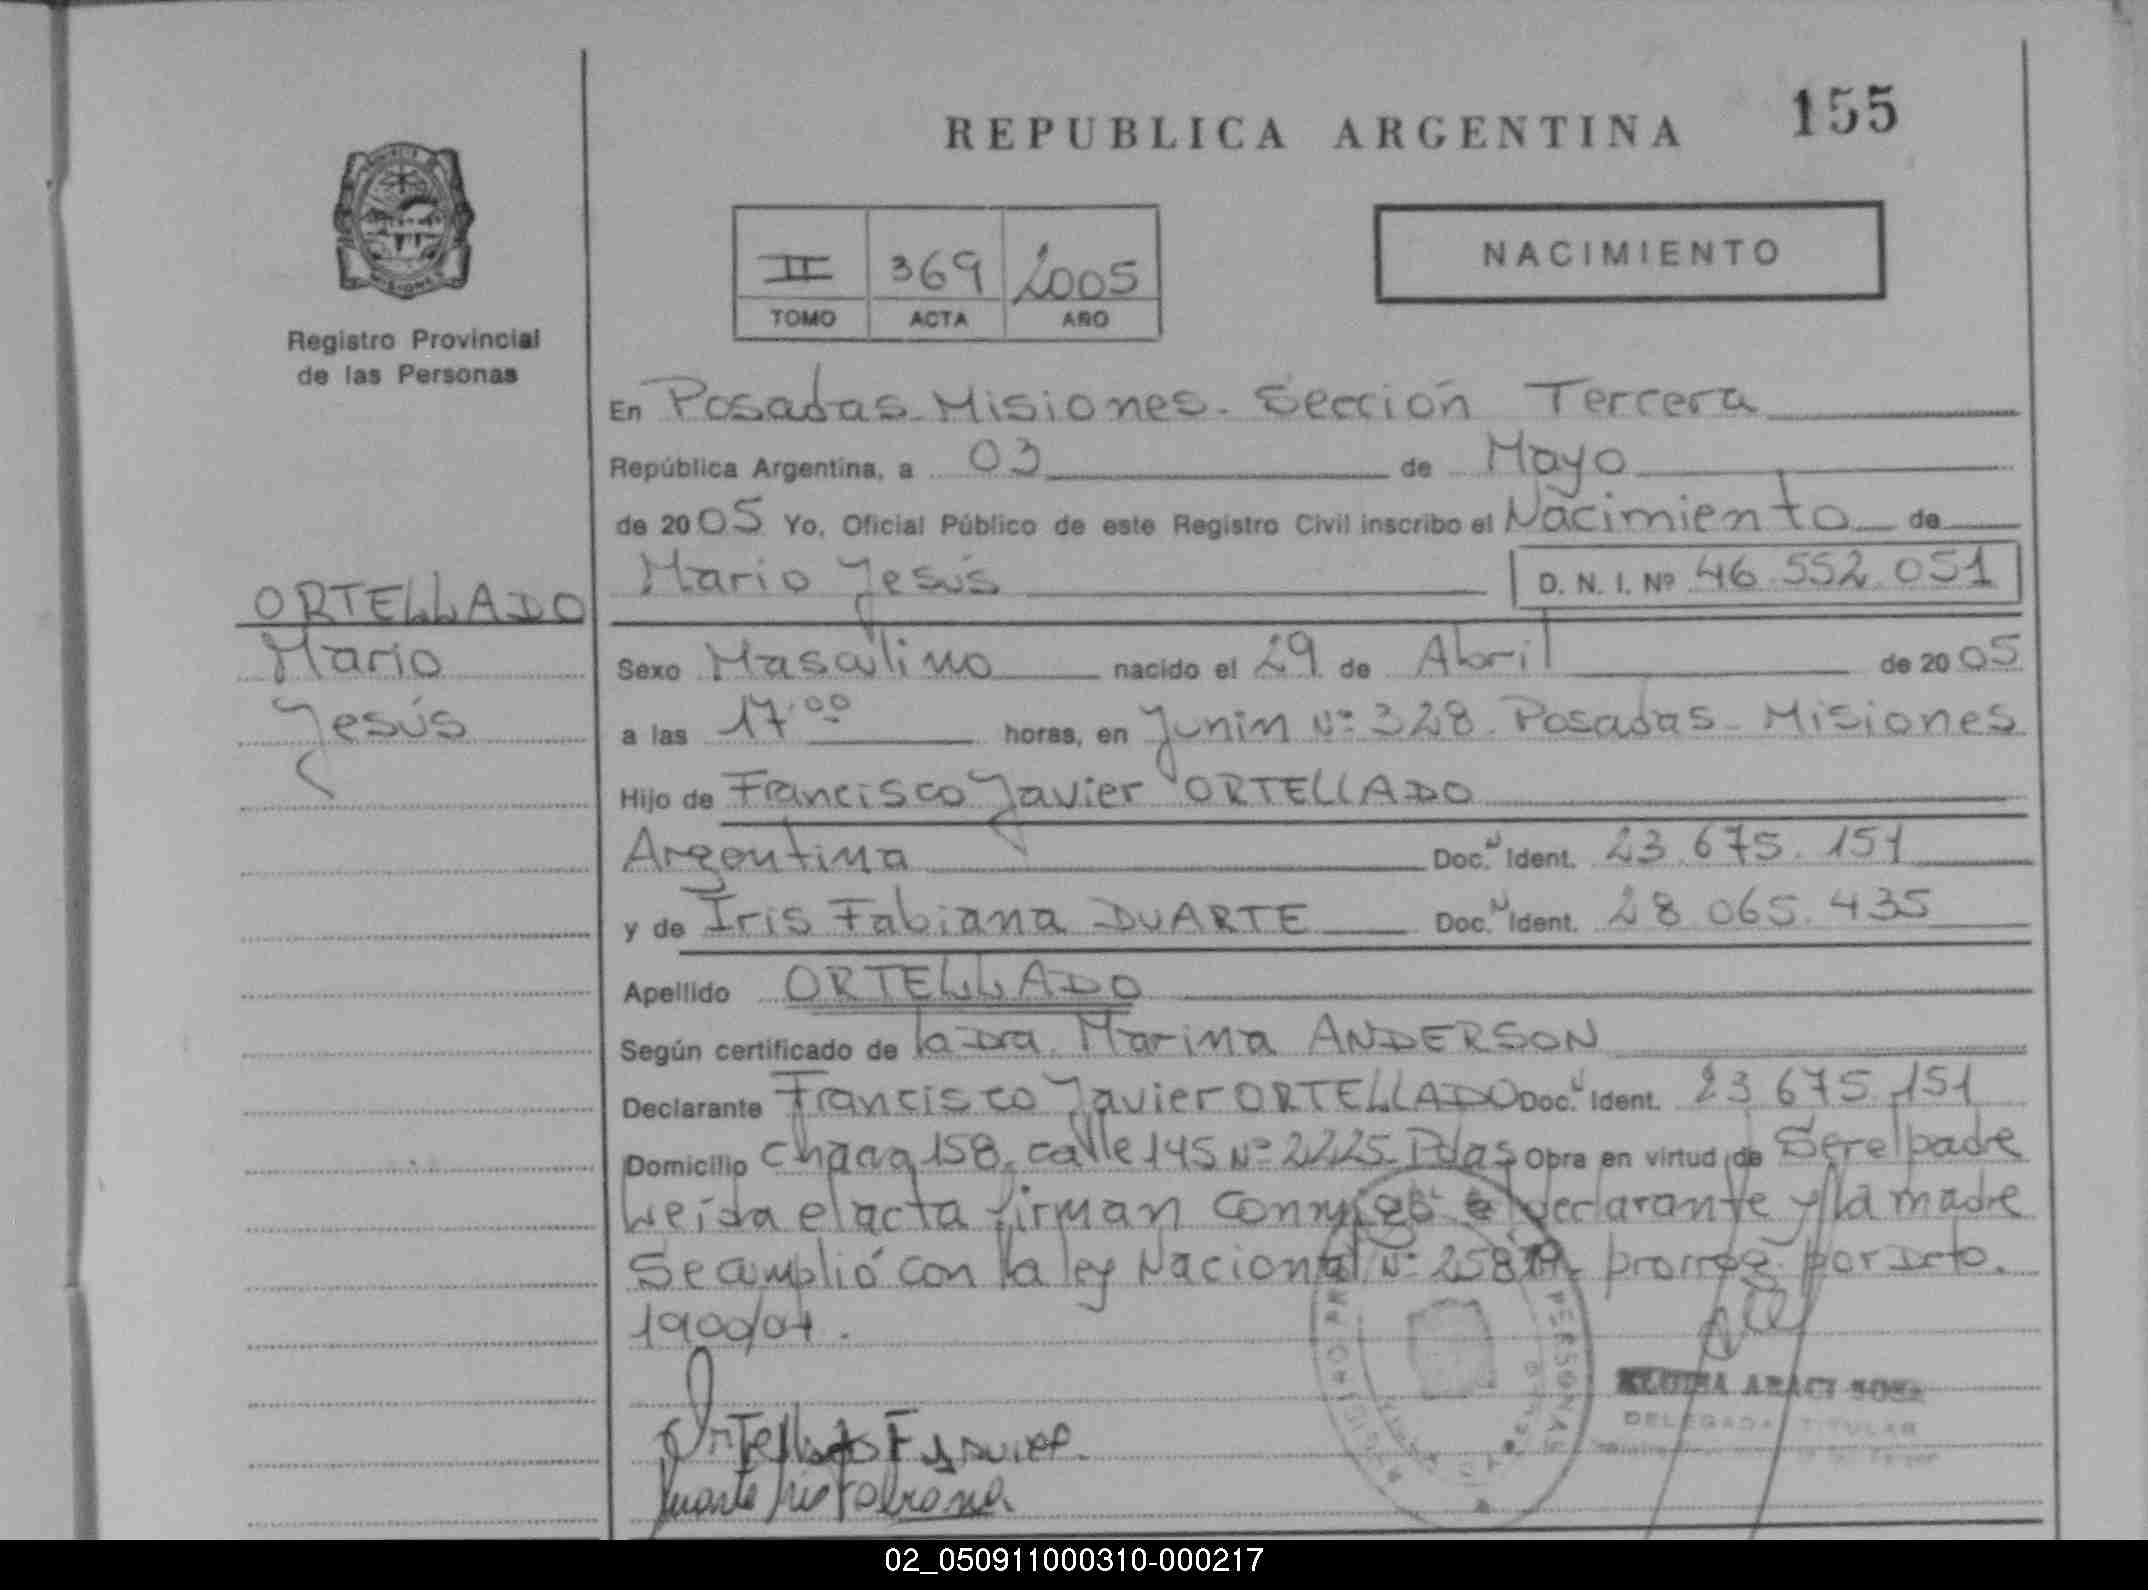 REPUBLICA ARGENTINA 155
II 369 2005
TOMO ACTA AÑO
NACIMIENTO
Registro Provincial
de las Personas
En Posadas - Misiones - Sección Tercera
República Argentina, a 03 de Mayo
de 2005 Yo, Oficial Público de este Registro Civil inscribo el Nacimiento de
Mario Jesús D. N. I. Nº 46.552.051
ORTELLADO
Mario
Jesús
Sexo Masculino nacido el 29 de Abril de 2005
a las 17:00 horas, en Junin Nº 328 - Posadas - Misiones
Hijo de Francisco Javier ORTELLADO
Argentina Doc. N Ident. 23.675.151
y de Iris Fabiana DUARTE Doc. N Ident. 28.065.435
Apellido ORTELLADO
Según certificado de la Dra. Marina ANDERSON
Declarante Francisco Javier ORTELLADO Doc. N Ident. 23.675.151
Domicilio Chacra 158, calle 145 Nº 2225 - Pdas Obra en virtud de Ser el padre
Leída el acta firman conmigo el declarante y la madre
Se cumplió con la ley Nacional Nº 25819 - prorrog. por Dcto.
1900/04.
Ortellado F Javier
Duarte Iris Fabiana
ARACI SOSA
DELEGADA TITULAR
02_050911000310-000217